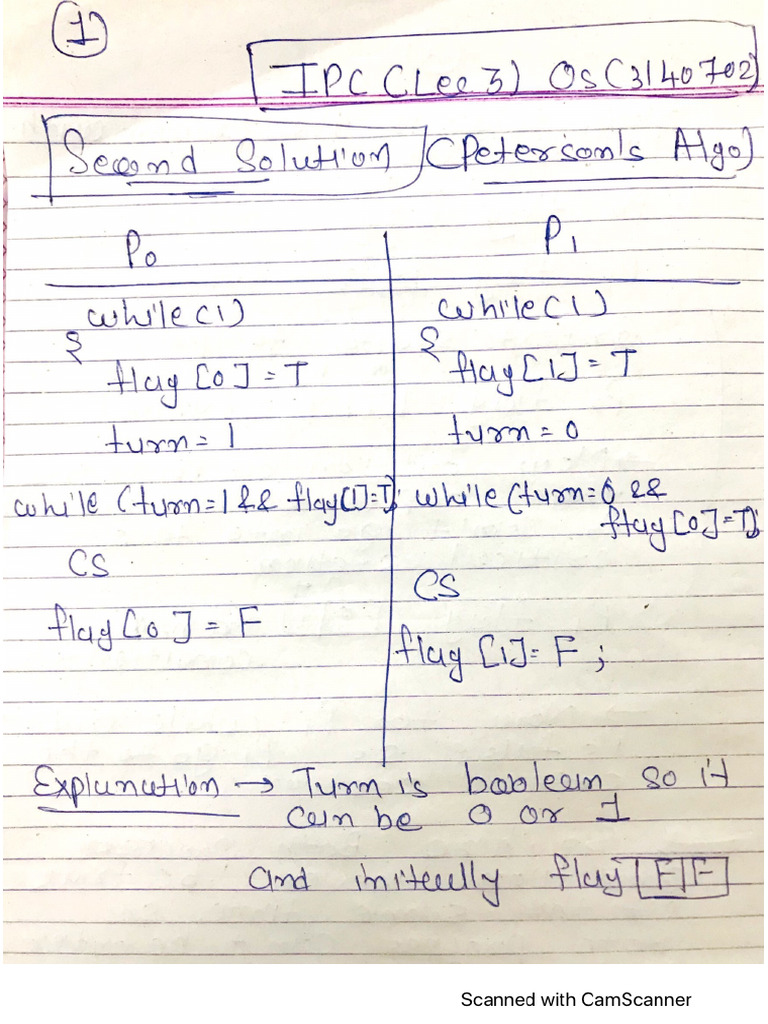 1
IPC (Lec 3) OS (3140702)
Second Solution (Peterson's Algo)
P0
while(1)
{
flag [0] = T
turn = 1
while (turn=1 && flag[1]=T);
CS
flag[0] = F
P1
while(1)
{
flag [1] = T
turn = 0
while (turn=0 &&
flag[0]=T);
CS
flag [1] = F ;
Explanation → Turn is boolean so it
can be 0 or 1
and initeally flag F F
Scanned with CamScanner